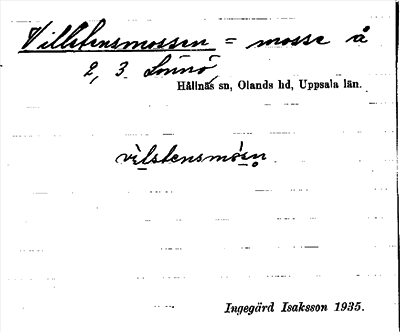 Villstensmossen = mosse å
2, 3 Lönnö,
Hållnäs sn, Olands hd, Uppsala län.
vìlstensmòsn
Ingegärd Isaksson 1935.